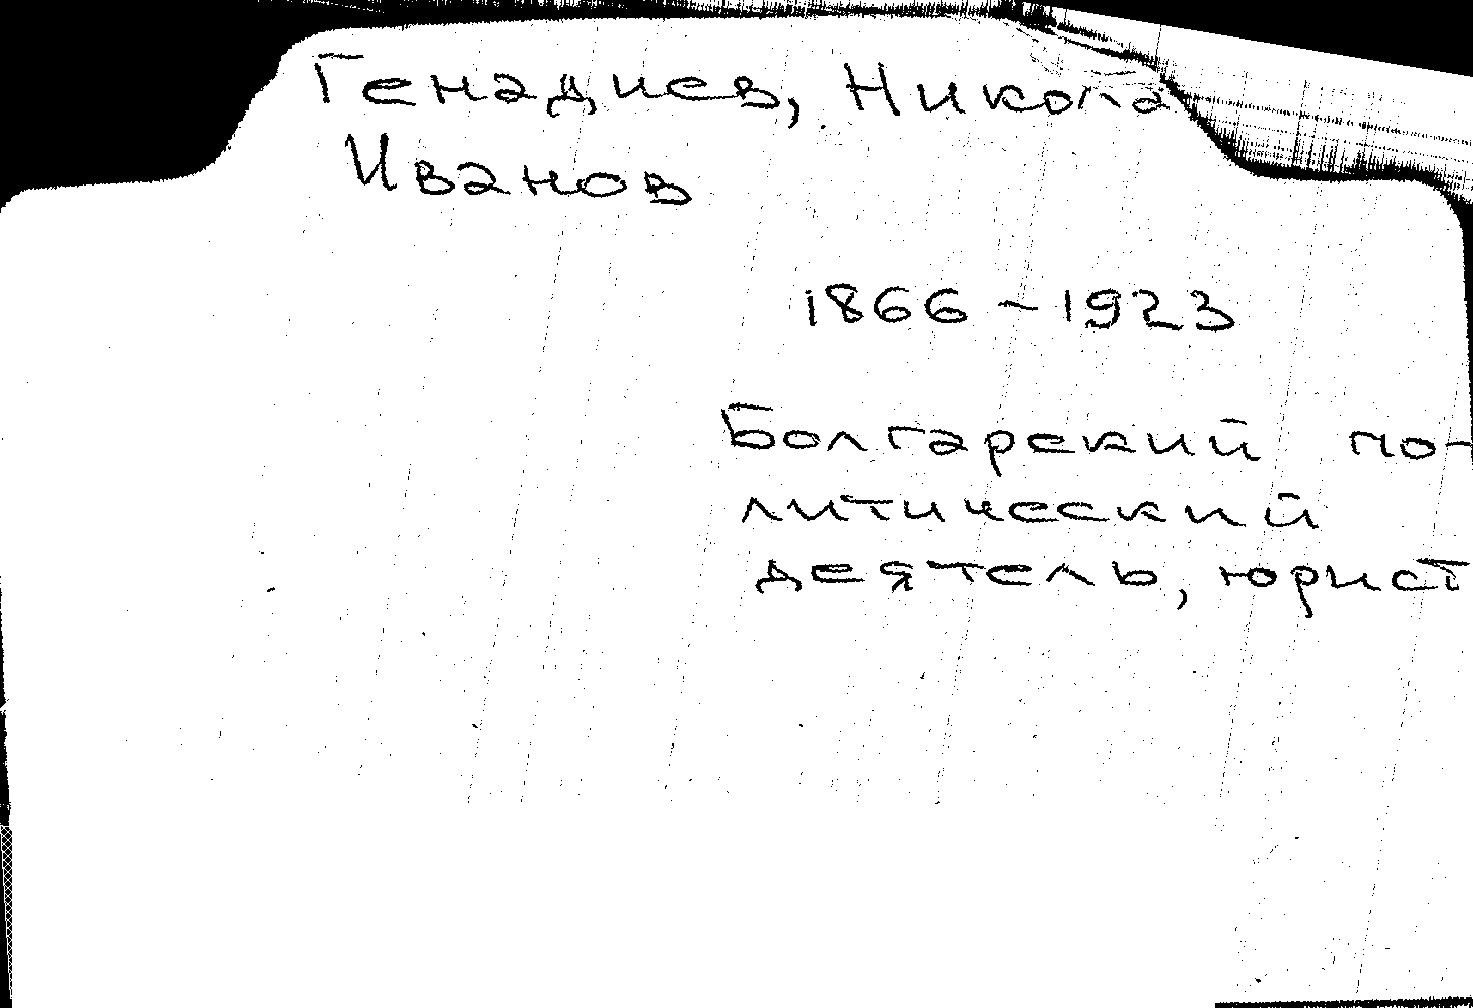 Генадиев, Никола
Иванов
1866-1923
Болгарский по-
литический
деятель, юрист